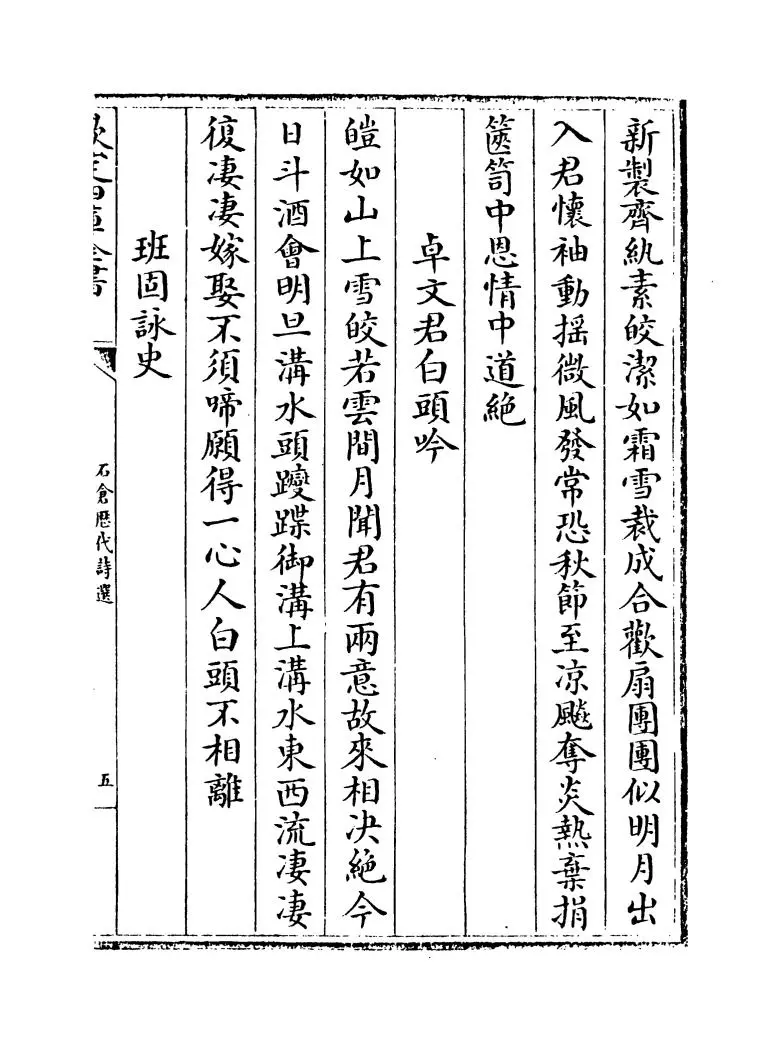 新製齊紈素皎潔如霜雪裁成合歡扇團團似明月出
入君懷袖動揺微風發常恐秋節至凉飈奪炎熱棄捐
篋笥中恩情中道絶
卓文君白頭吟
皚如山上雪皎若雲間月聞君有兩意故來相决絶今
日斗酒會明旦溝水頭躞蹀御溝上溝水東西流凄凄
復凄凄嫁娶不須啼願得一心人白頭不相離
班固詠史
欽定四庫全書
石倉歴代詩選
五